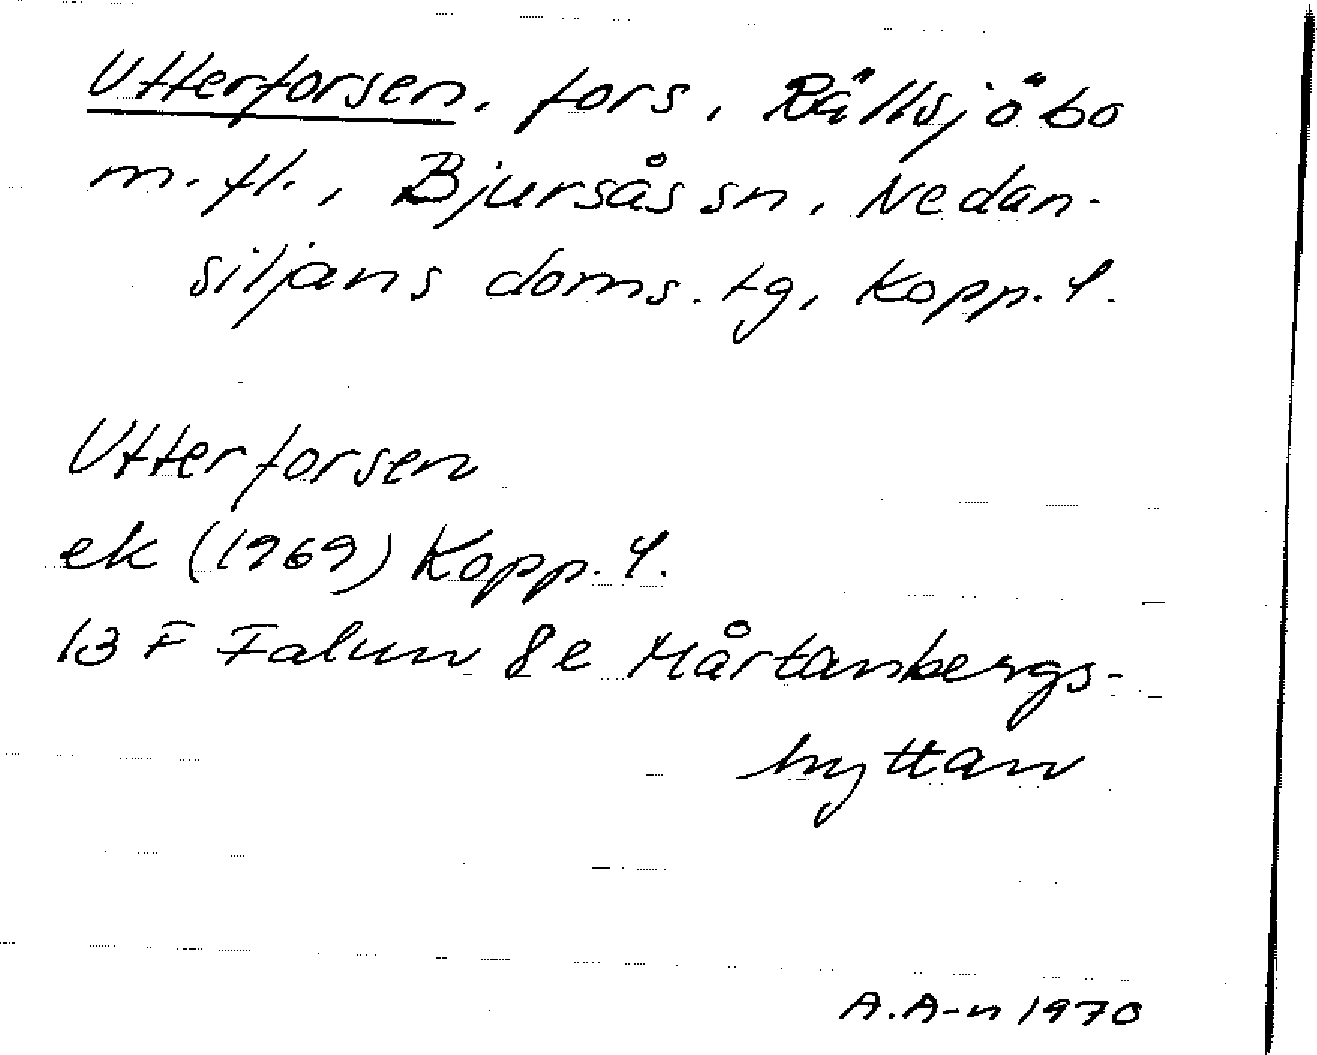 Utterforsen, fors, Rällsjöbo
m.fl., Bjursås sn, Nedan-
siljans doms. tg, Kopp. l.
Utterforsen
ek (1969) Kopp. l.
13 F Falun 8 e Mårtanbergs-
hyttan
A.A-n 1970